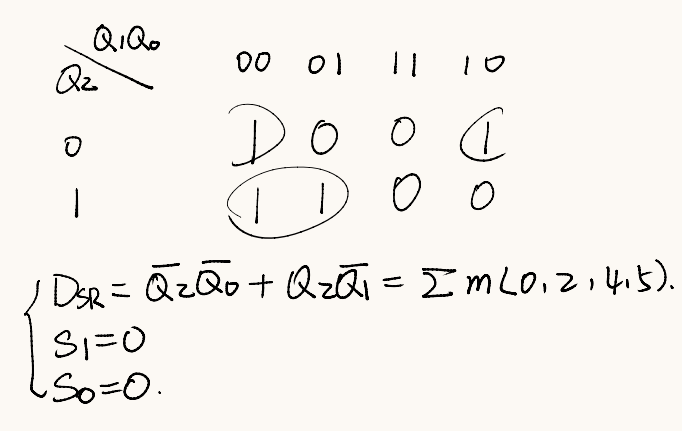 Q₁Q₀
Q₂
00 01 11 10
0 1 0 0 1
1 1 1 0 0
D_SR = Q̅₂Q̅₀ + Q₂Q̅₁ = Σm(0,2,4,5).
S₁=0
S₀=0.